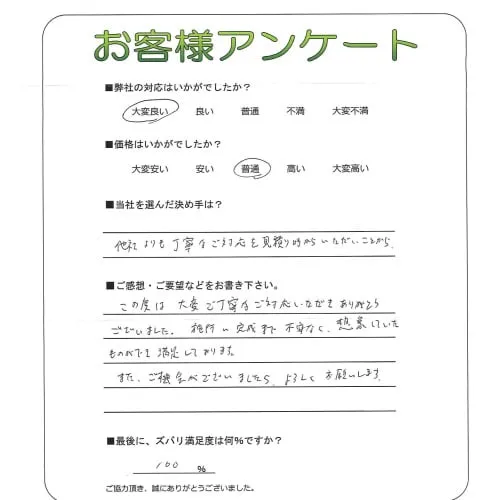 お客様アンケート
■弊社の対応はいかがでしたか？
大変良い 良い 普通 不満 大変不満
■価格はいかがでしたか？
大変安い 安い 普通 高い 大変高い
■当社を選んだ決め手は？
他社よりも丁寧なご対応を見積り時からいただいたことから、
■ご感想・ご要望などをお書き下さい。
この度は大変ご丁寧なご対応いただきありがとう
ございました。 完成まで不安なく、想像していた
ものができ満足しております。
また、ご機会がございましたら、よろしくお願いします。
■最後に、ズバリ満足度は何％ですか？
100 ％
ご協力頂き、誠にありがとうございました。